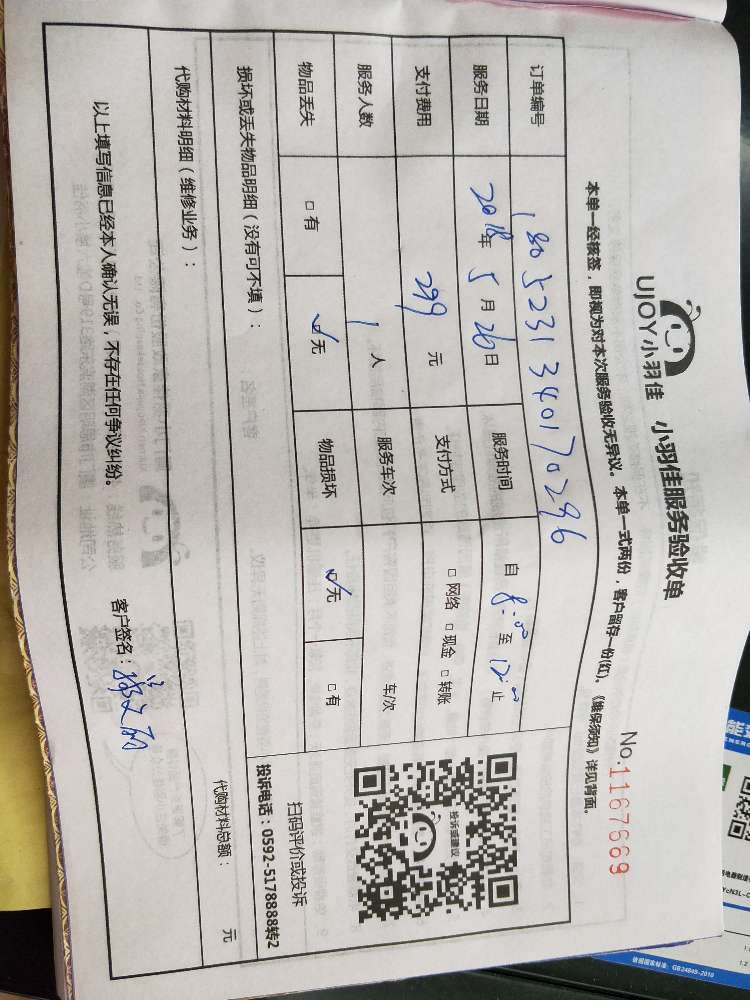 UJOY小羽佳 小羽佳服务验收单
No.1167669
本单一经核签，即视为对本次服务验收无异议。本单一式两份，客户留存一份(红)。《维保须知》详见背面。
订单编号 1805231340170296
服务日期 2018年 5 月 26 日 服务时间 自 8:00 至 12:00 止
支付费用 299 元 支付方式 □ 网络 □ 现金 □ 转账
服务人数 1 人 服务车次 车/次
物品丢失 □ 有 ☑ 无 物品损坏 ☑ 无 □ 有
投诉或建议
扫码评价或投诉
投诉电话：0592-5178888转2
损坏或丢失物品明细（没有可不填）：
代购材料明细（维修业务）： 代购材料总额： 元
以上填写信息已经本人确认无误，不存在任何争议纠纷。 客户签名：
依据国家标准：GB24849-2010